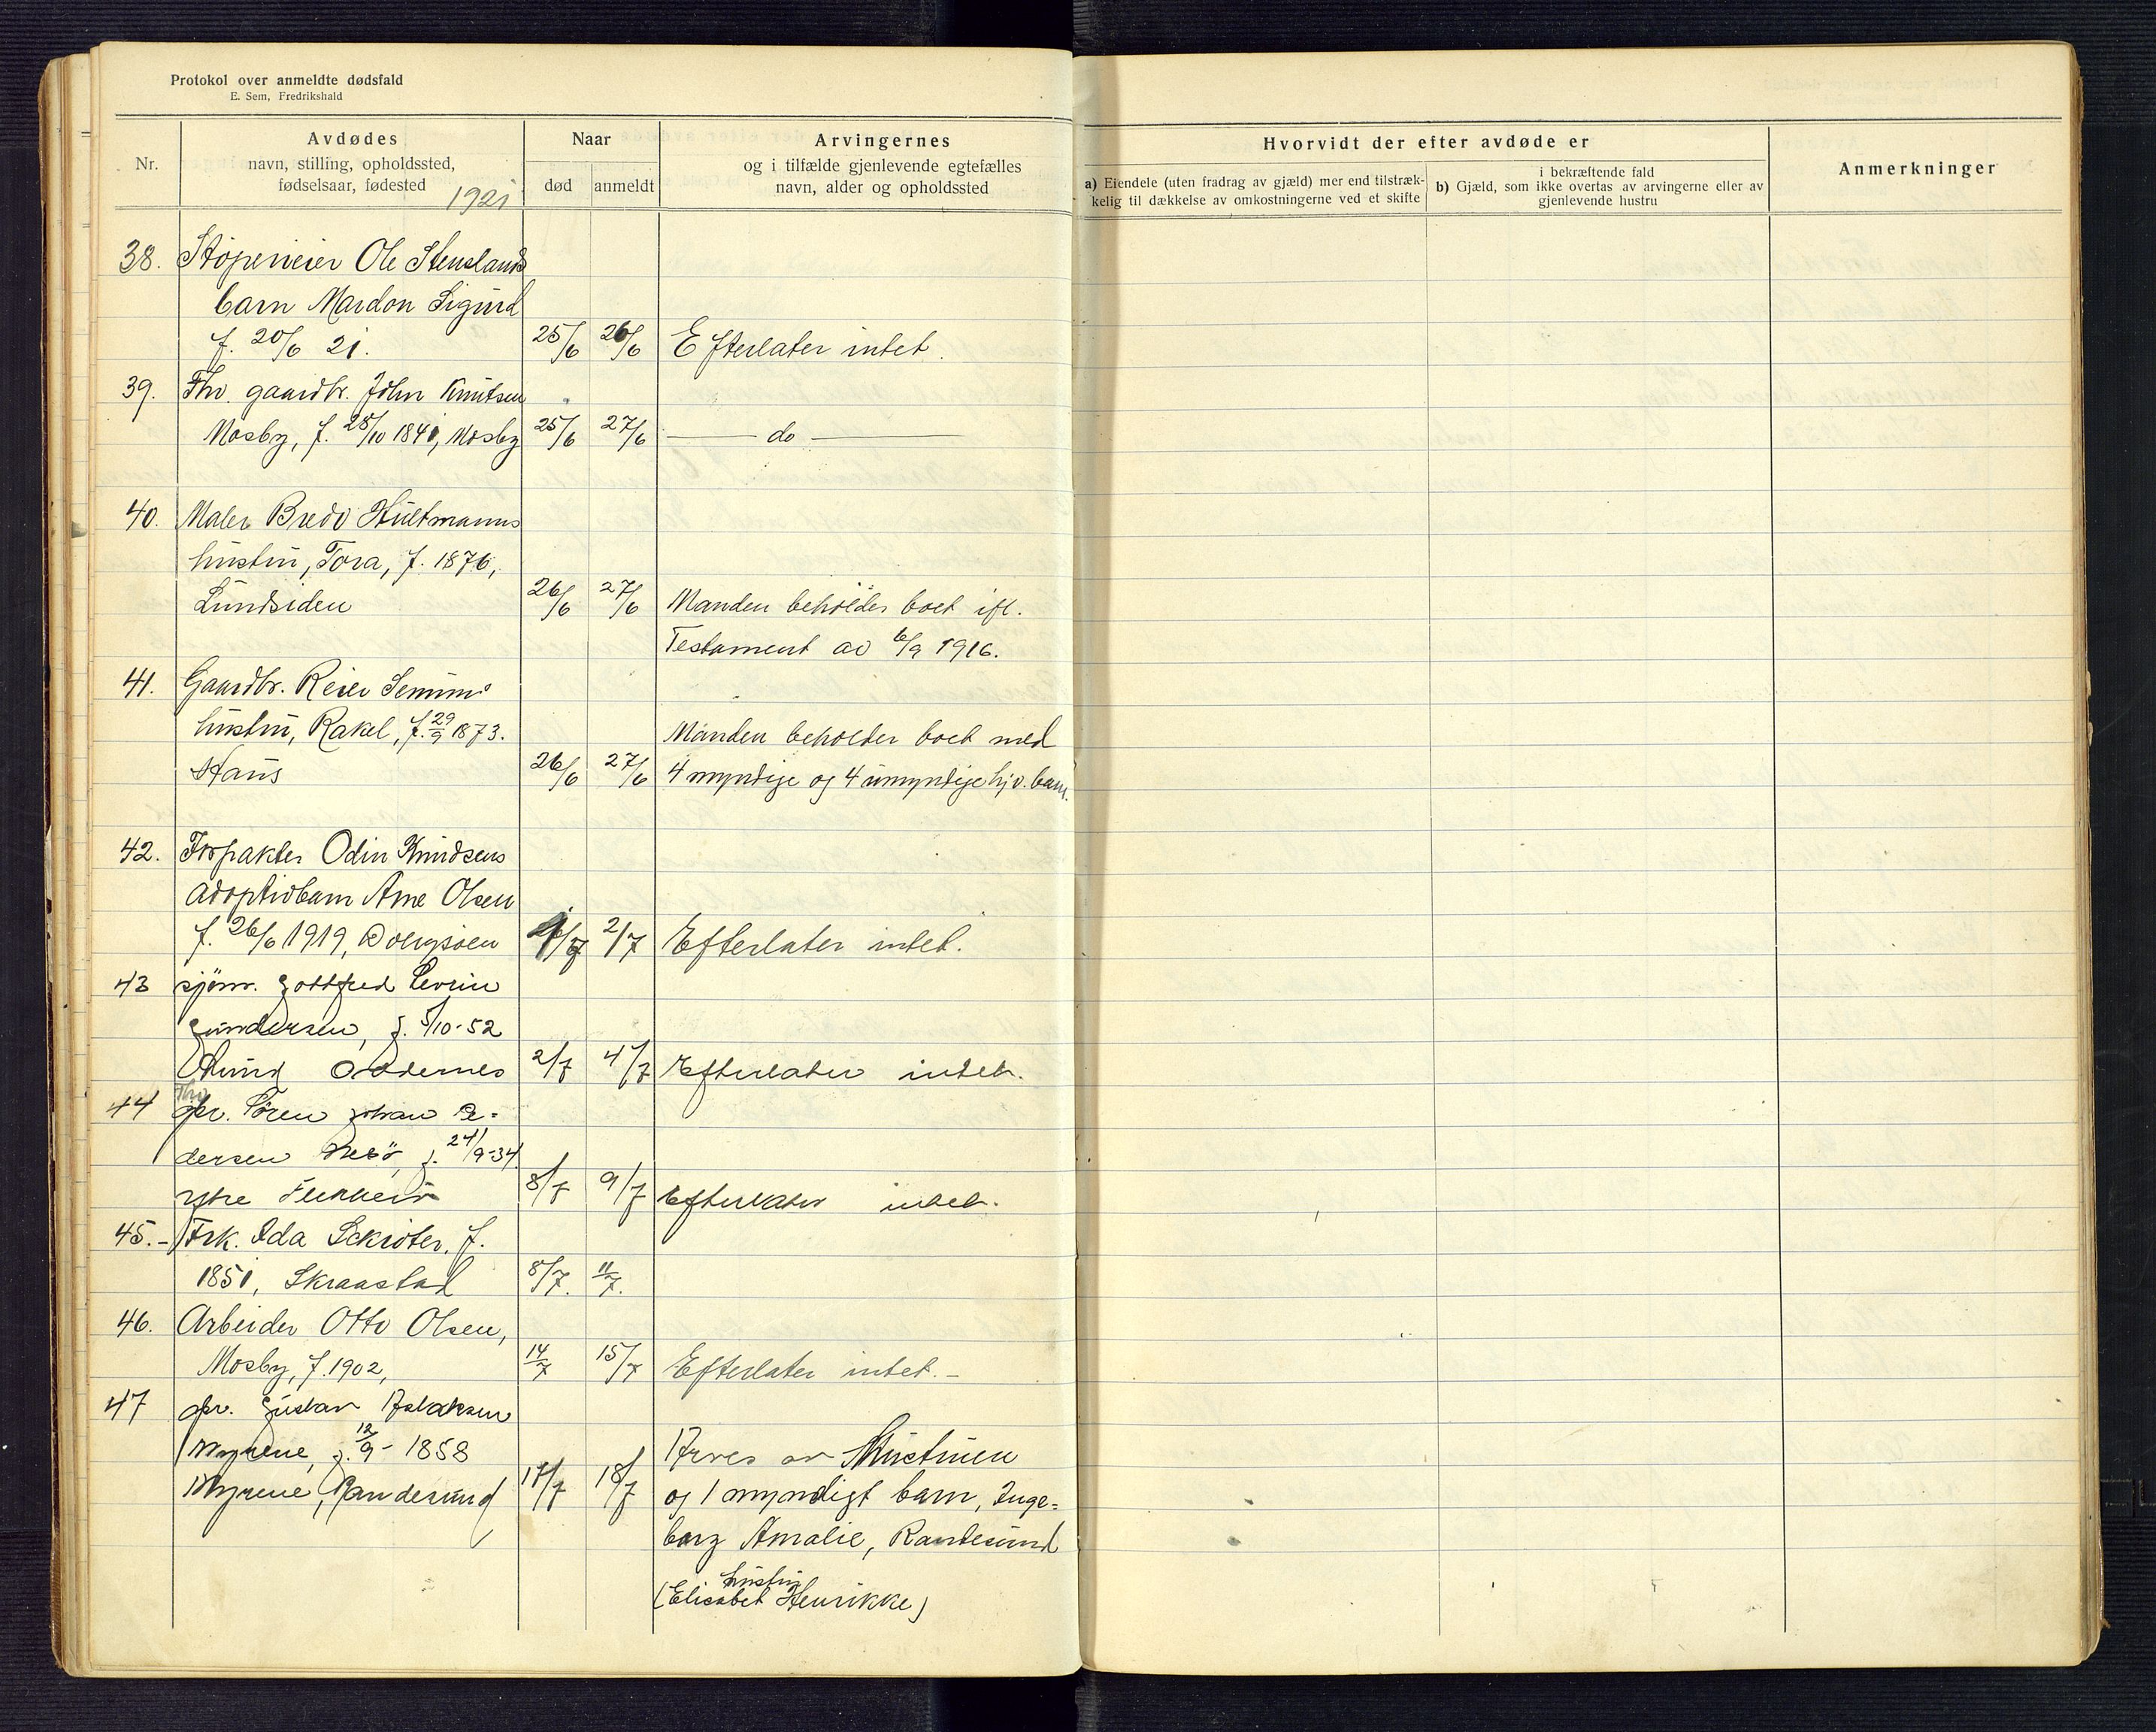 Protokol over anmeldte dødsfald
E. Sem, Fredrikshald
Nr.
Avdødes
navn, stilling, opholdssted,
fødselsaar, fødested
1921
Naar
død
anmeldt
Arvingernes
og i tilfælde gjenlevende egtefælles
navn, alder og opholdssted
Hvorvidt der efter avdøde er
a) Eiendele (uten fradrag av gjæld) mer end tilstræk-
kelig til dækkelse av omkostningerne ved et skifte
i bekræftende fald
b) Gjæld, som ikke overtas av arvingerne eller av
gjenlevende hustru
Anmerkninger
38. Støperieier Ole Stenslands
barn Mardon Sigurd
f. 20/6 21. 25/6 26/6 Efterlater intet.
39. Fhv. gaardbr. John Knutsen
Mosby, f. 28/10 1841, Mosby 25/6 27/6 — do —
40. Maler Bredo Hultmanns
hustru, Tora, f. 1876,
Lundsiden 26/6 27/6 Manden beholder boet ifl.
Testament av 6/9 1916.
41. Gaardbr. Reier
hustru, Rakel, f. 29/9 1873. Manden beholder boet med
Haus 26/6 27/6 4 myndige og 4 umyndige hjv. barn.
42. Forpakter Odin Knudsens
adoptivbarn Arne Olsen
f. 26/6 1919, 2/7 Efterlater intet.
43 sjøm. Gottfred Severin
Gundersen, f. 5/10-52
Oddernes 2/7 4/7 Efterlater intet.
44 Fhv. gbr. Søren Johan Pe=
dersen f. 24/9-34.
ytre Flekkerø 8/7 9/7 Efterlater intet.
45.- Frk. Ida Schrøter, f.
1851, Skraastad 8/7. 11/7.
46. Arbeider Otto Olsen,
Mosby, f. 1902, 14/7 15/7 Efterlater intet.-
47 gbr. Gustav Aslaksen
Myrene, f. 12/9- 1858 Arves av Hustruen
Myrene, Randesund 17/7 18/7 og 1 myndigt barn, Inge=
borg Amalie, Randesund
hustru
(Elisabet Henrikke)